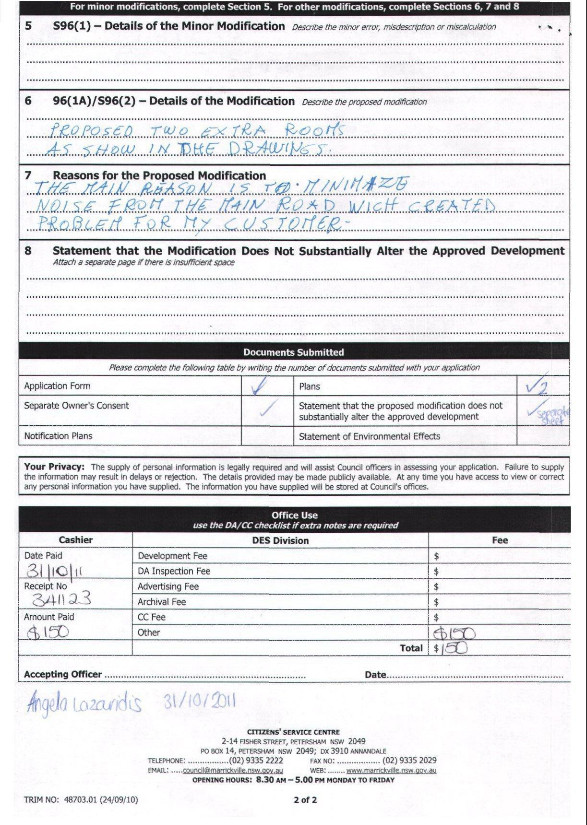 For minor modifications, complete Section 5. For other modifications, complete Sections 6, 7 and 8
5 S96(1) – Details of the Minor Modification Describe the minor error, misdescription or miscalculation
6 96(1A)/S96(2) – Details of the Modification Describe the proposed modification
PROPOSED TWO EXTRA ROOMS
AS SHOW IN DHE DRAWINGS.
7 Reasons for the Proposed Modification
THE MAIN REASON IS TO MINIMAZE
NOISE FROM THE MAIN ROAD WICH CREATED
PROBLEM FOR MY CUSTOMER-
8 Statement that the Modification Does Not Substantially Alter the Approved Development
Attach a separate page if there is insufficient space
Documents Submitted
Please complete the following table by writing the number of documents submitted with your application
Application Form ✓ Plans ✓2
Separate Owner's Consent ✓ Statement that the proposed modification does not substantially alter the approved development ✓ separate sheet
Notification Plans Statement of Environmental Effects
Your Privacy: The supply of personal information is legally required and will assist Council officers in assessing your application. Failure to supply
the information may result in delays or rejection. The details provided may be made publicly available. At any time you have access to view or correct
any personal information you have supplied. The information you have supplied will be stored at Council's offices.
Office Use
use the DA/CC checklist if extra notes are required
Cashier DES Division Fee
Date Paid Development Fee $
31/10/11 DA Inspection Fee $
Receipt No Advertising Fee $
341123 Archival Fee $
Amount Paid CC Fee $
$150 Other $150
Total $150
Accepting Officer Date
Angela Lazaridis 31/10/2011
CITIZENS' SERVICE CENTRE
2-14 FISHER STREET, PETERSHAM NSW 2049
PO BOX 14, PETERSHAM NSW 2049; DX 3910 ANNANDALE
TELEPHONE: (02) 9335 2222 FAX NO: (02) 9335 2029
EMAIL: council@marrickville.nsw.gov.au WEB: www.marrickville.nsw.gov.au
OPENING HOURS: 8.30 AM – 5.00 PM MONDAY TO FRIDAY
TRIM NO: 48703.01 (24/09/10) 2 of 2